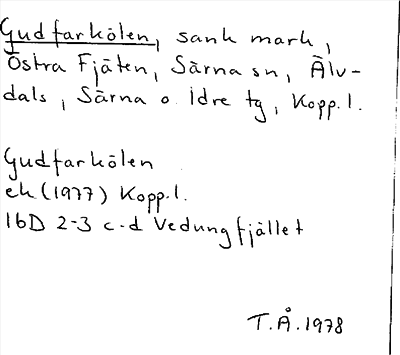 Gudfarkölen, sank mark,
Östra Fjäten, Särna sn, Älv-
dals, Särna o. Idre tg, Kopp.l.
Gudfarkölen
ek (1977) Kopp.l.
16D 2-3 c-d Vedungfjället
T.Å. 1978